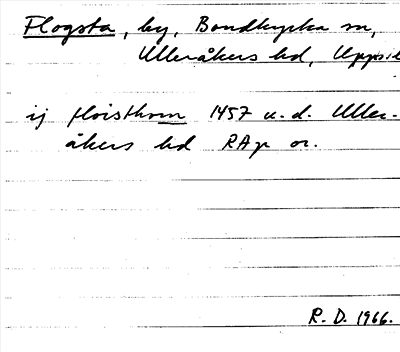 Flogsta, by, Bondkyrka sn,
Ulleråkers hd, Uppsa
ij floisthom 1457 u. d. Uller-
åkers hd RAp or.
R. D. 1966.